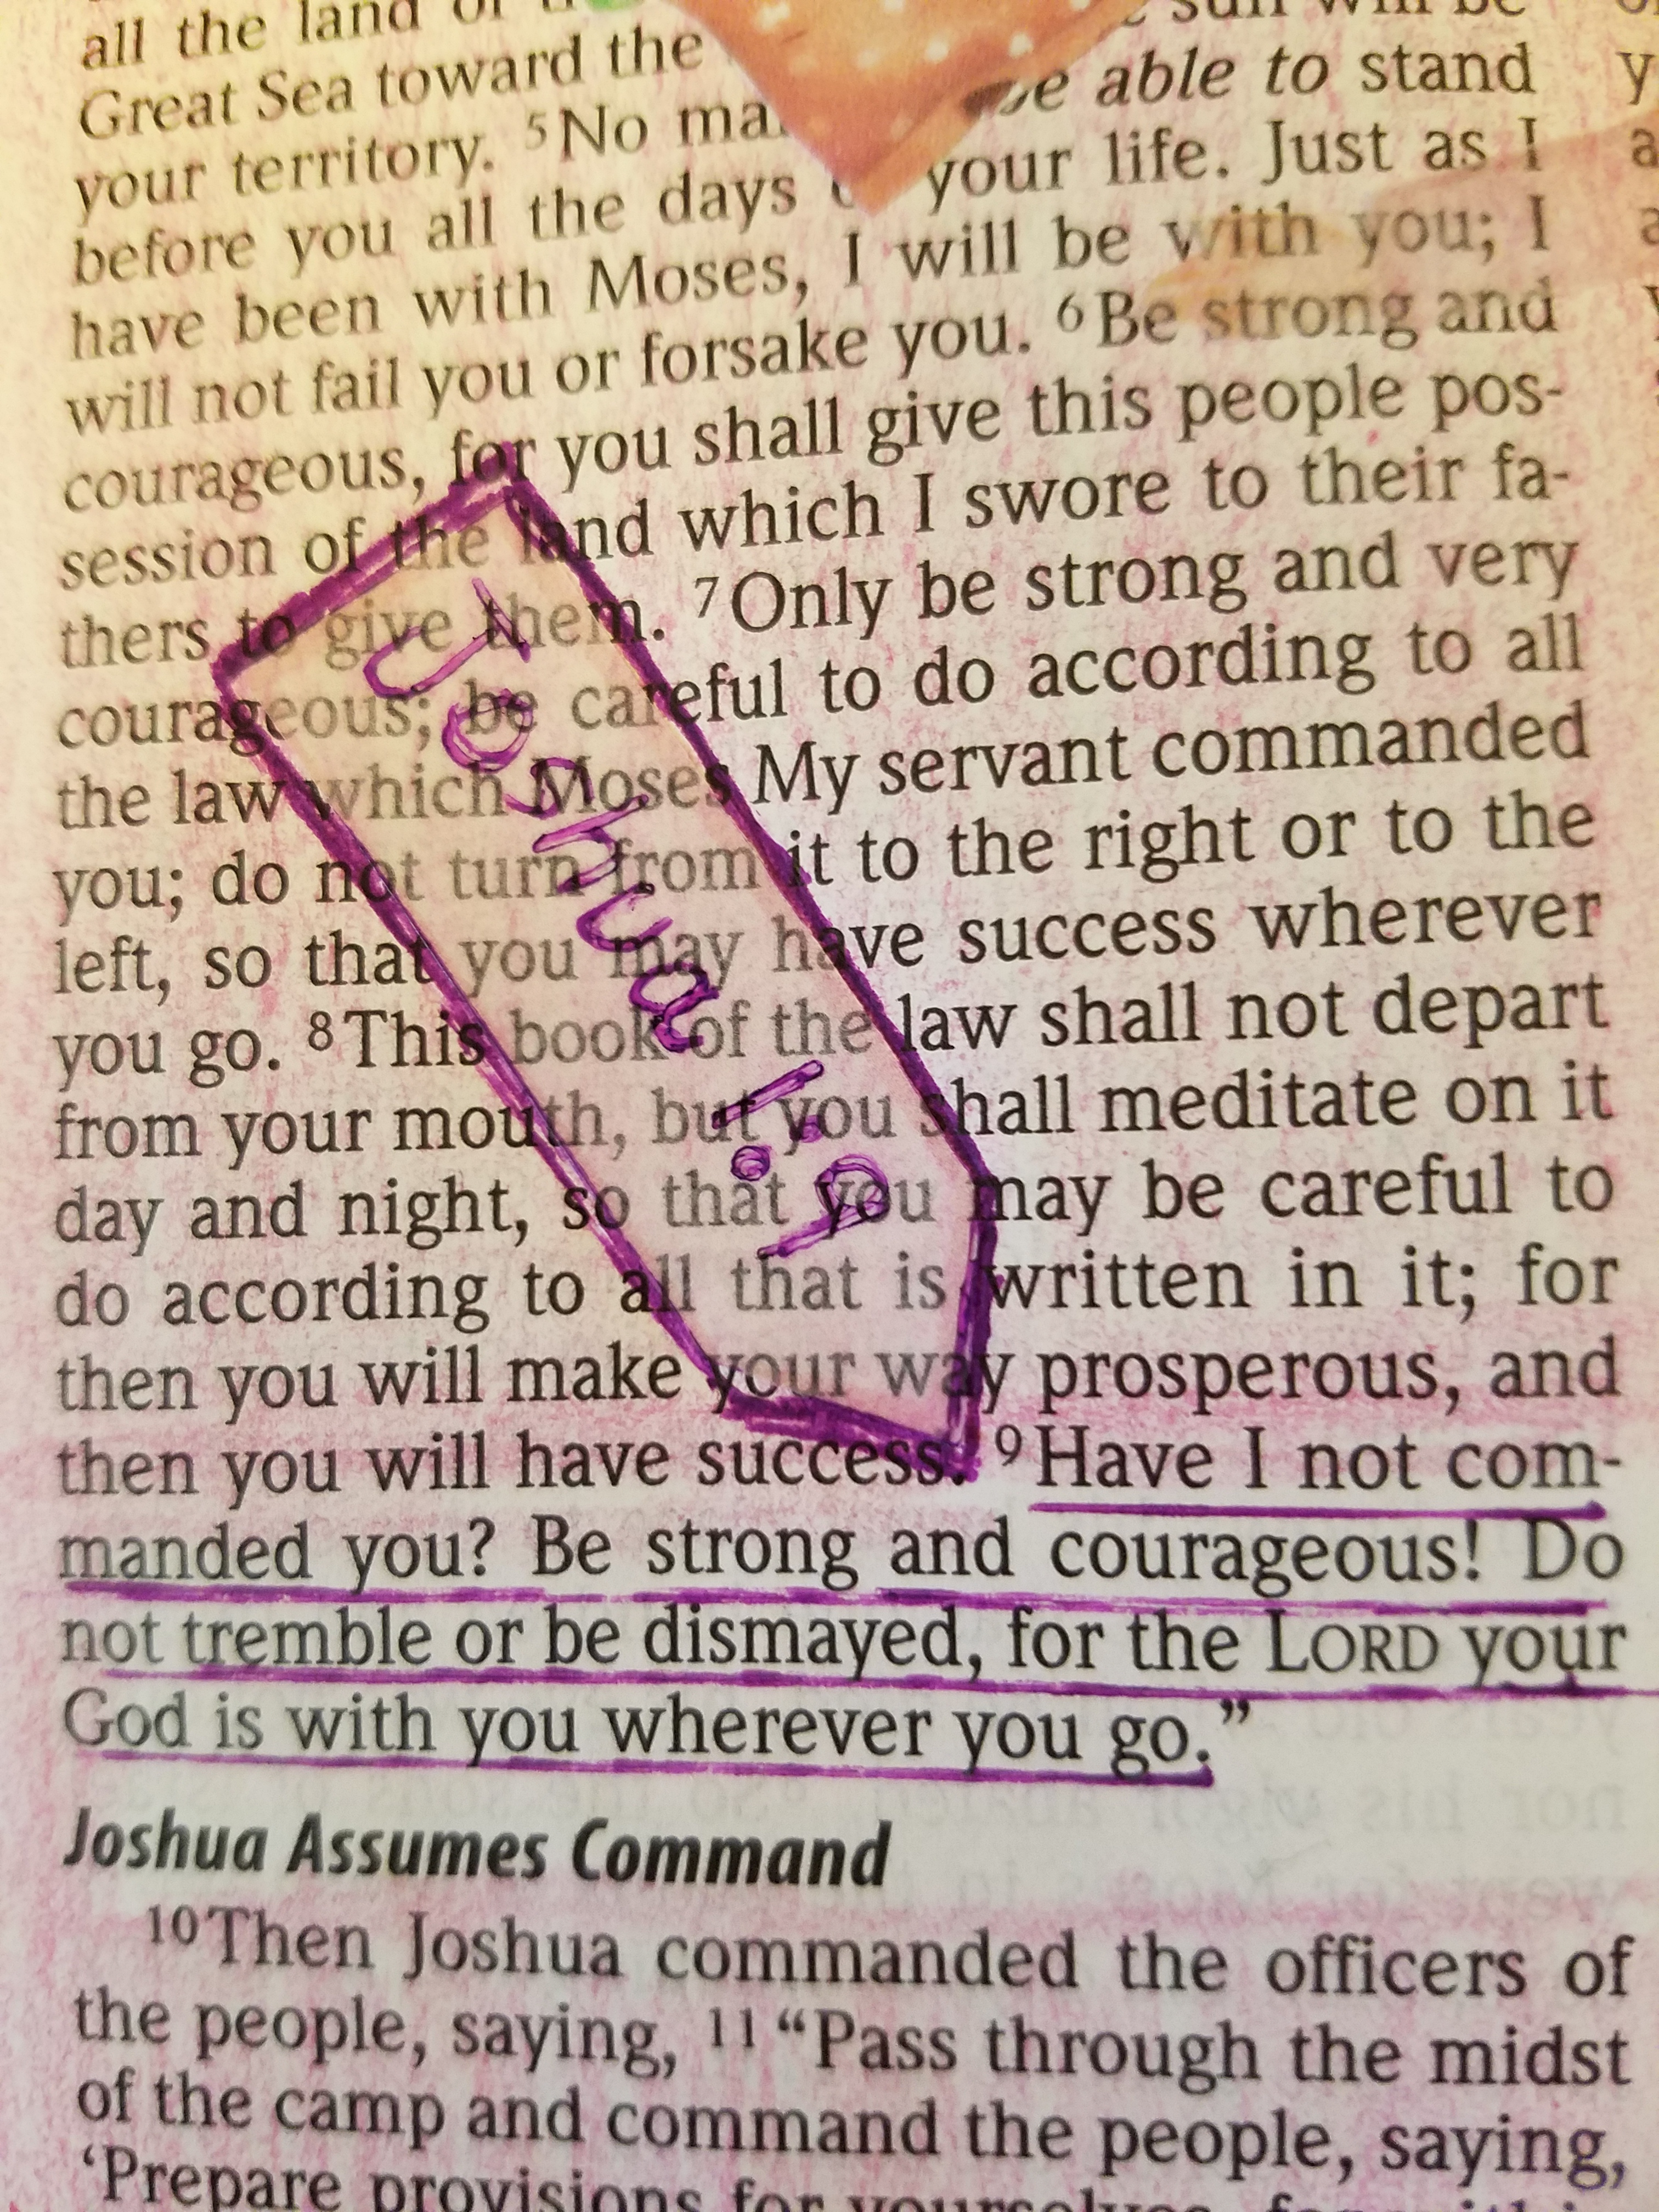 all the land of
Great Sea toward the sun will be
your territory. 5No be able to stand
before you all the days your life. Just as I
have been with Moses, I will be with you; I
will not fail you or forsake you. 6Be strong and
courageous, for you shall give this people pos-
session of the land which I swore to their fa-
thers to give them. 7Only be strong and very
courageous; be careful to do according to all
the law which Moses My servant commanded
you; do not turn from it to the right or to the
left, so that you may have success wherever
you go. 8This book of the law shall not depart
from your mouth, but you shall meditate on it
day and night, so that you may be careful to
do according to all that is written in it; for
then you will make your way prosperous, and
then you will have success. 9Have I not com-
manded you? Be strong and courageous! Do
not tremble or be dismayed, for the LORD your
God is with you wherever you go.”
Joshua 1:9
Joshua Assumes Command
10Then Joshua commanded the officers of
the people, saying, 11“Pass through the midst
of the camp and command the people, saying,
‘Prepare provisions for yourselves, for